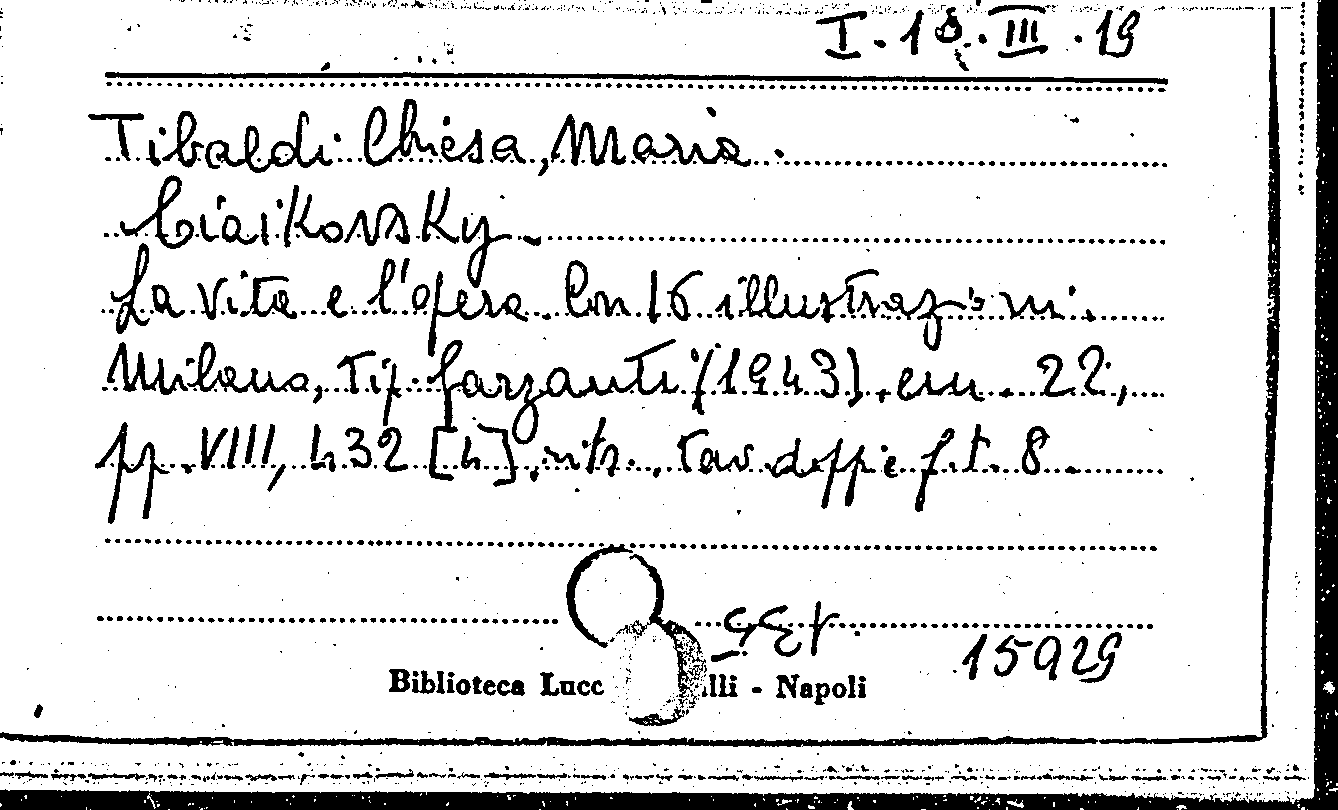 I. 18. III. 19
Tibaldi Chiesa, Maria.
Ciaikovsky.
La vita e l'opera. Con 16 illustrazioni.
Milano, Tip. Garzanti (1943). cm. 22,
pp. VIII, 432 [4]. ritr. tav. doppie f. t. 8.
15929
Biblioteca Lucc lli - Napoli